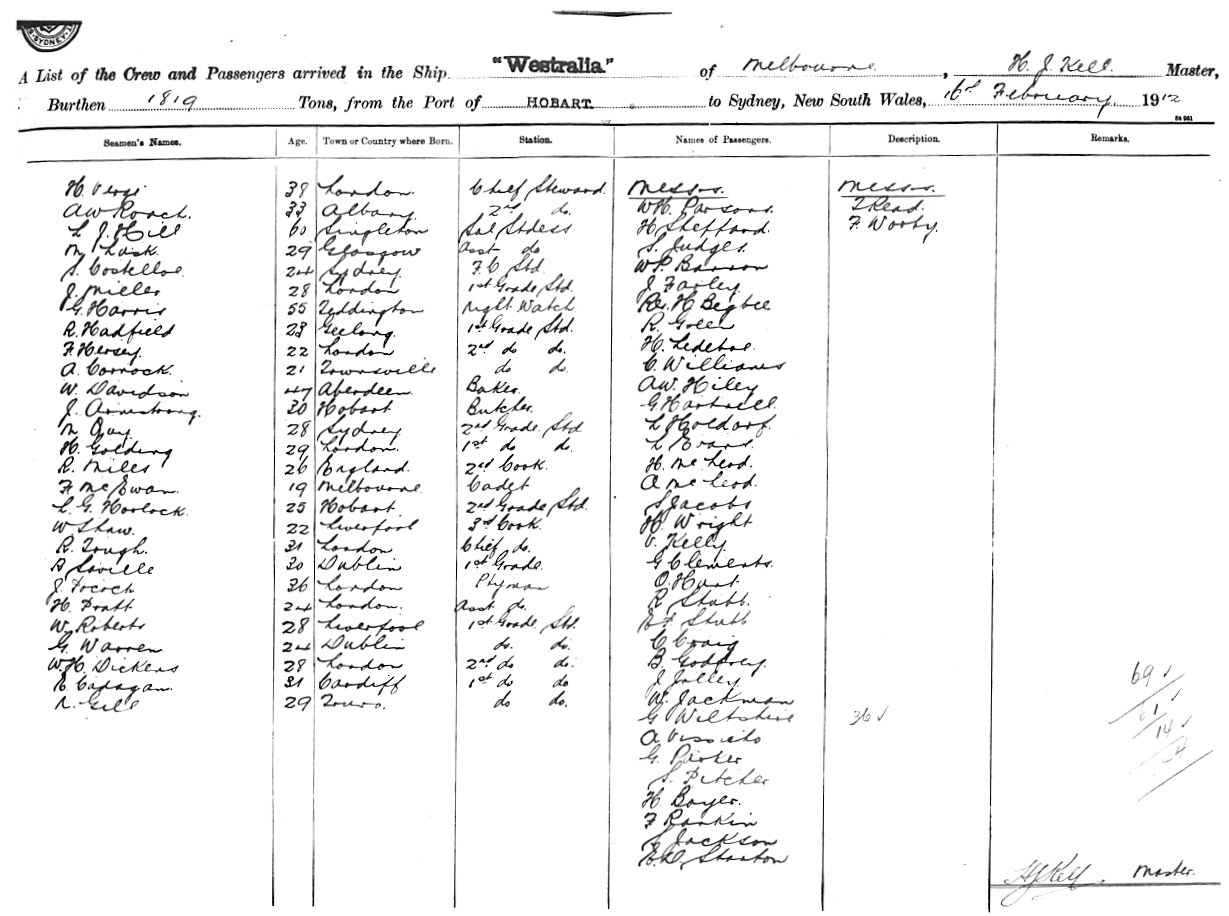 SYDNEY
A List of the Crew and Passengers arrived in the Ship "Westralia." of Melbourne, H. J. Kell. Master,
Burthen 1819 Tons, from the Port of HOBART. to Sydney, New South Wales, 16th February 1912
Seamen's Names. Age. Town or Country where Born. Station. Names of Passengers. Description. Remarks.
H. Verge 38 London. Chief Steward. Messrs. Messrs.
A W Roach. 33 Albany. 2nd do. W H. Parsons. T Read.
L J. Hill 60 Singleton Sal Stdess H. Sheppard. F. Worby.
M. Lusk. 29 Glasgow Asst do S. Judges.
S. Costelloe 24 Sydney. F. C Std. W P. Barron
J. Miller 28 London 1st Grade Std. J Farley.
G. Harris 55 Teddington Night Watch Rev. H Begbie
R. Hadfield 23 Geelong. 1st Grade Std. R. Green
F. Hersey. 22 London 2nd do do. H.
A. Cornock. 21 Townsville do do. C. Williams
W. Davidson 47 Aberdeen. Baker. A W. Hiley
J. Armstrong. 30 Hobart Butcher. G. Hartnell.
M 28 Sydney 2nd Grade Std L Holdorf.
H. Golding 29 London. 1st do do. L Evans.
R. Miles 26 England. 2nd Cook. H. McLeod.
F. McEwan. 19 Melbourne. Cadet A McLeod.
L. G. Horlock. 25 Hobart. 2nd Grade Std. S Jacobs
W Shaw. 22 Liverpool 3rd Cook. H. Wright
R. Tough. 31 London Chief do. V. Kelly.
B Saville 30 Dublin 1st Grade. G Clements.
J. 36 London Ptyman O. Hunt
H. Pratt 24 London. Asst do. R Stubb.
W. Roberts 28 Liverpool 1st Grade Std. Stubb
G. Warren 24 Dublin do. do. C Craig
W. H. Dickens 28 London 2nd do do. B. Godfrey.
E Cadagan. 31 Cardiff 1st do do J Jolley
Gill 29 Truro. do do. W. Jackman
G Wiltshire 36
A.
G. Parker
S. Pitcher
H Boyer.
F Rankin
S Jackson
Stanton
69
61
14
H J Kell. Master.